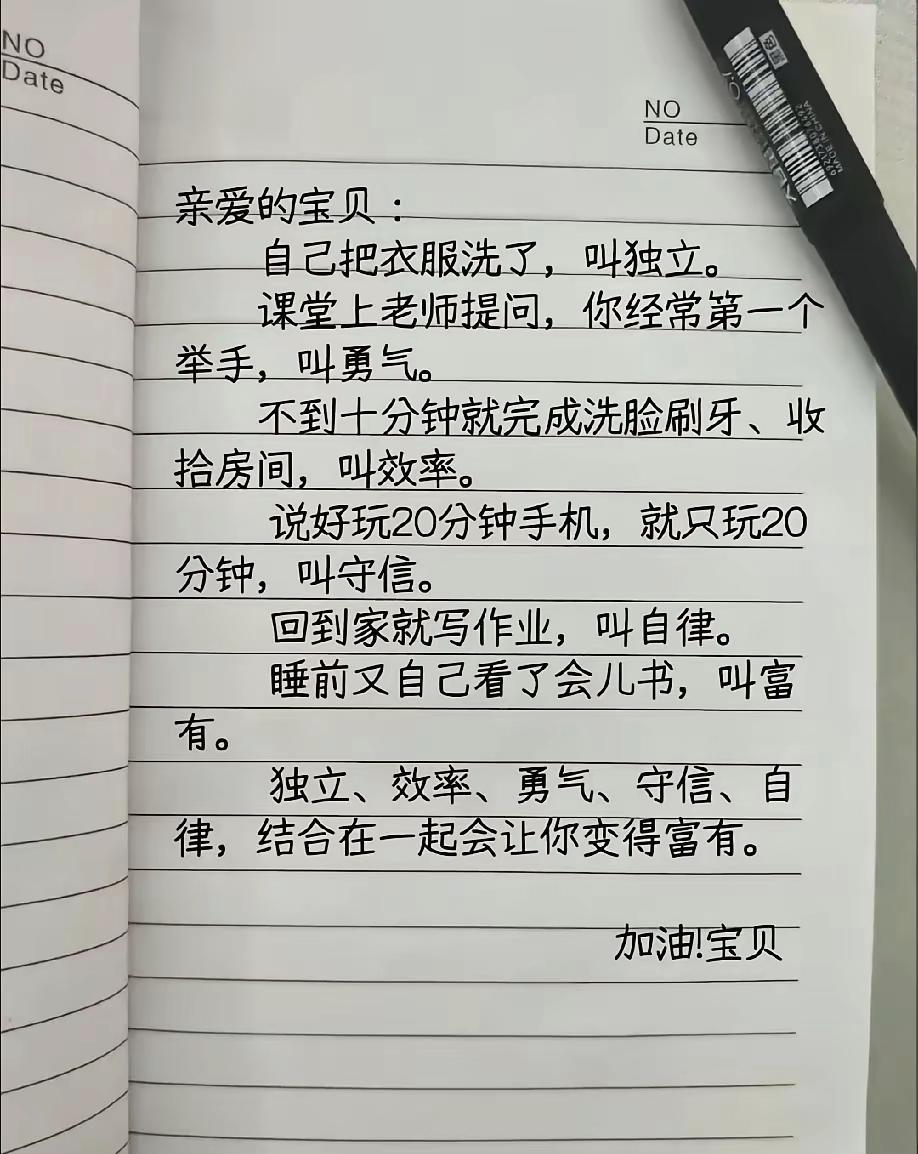 NO
Date
NO
Date
亲爱的宝贝：
自己把衣服洗了，叫独立。
课堂上老师提问，你经常第一个
举手，叫勇气。
不到十分钟就完成洗脸刷牙、收
拾房间，叫效率。
说好玩20分钟手机，就只玩20
分钟，叫守信。
回到家就写作业，叫自律。
睡前又自己看了会儿书，叫富
有。
独立、效率、勇气、守信、自
律，结合在一起会让你变得富有。
加油!宝贝
MADE IN CHINA